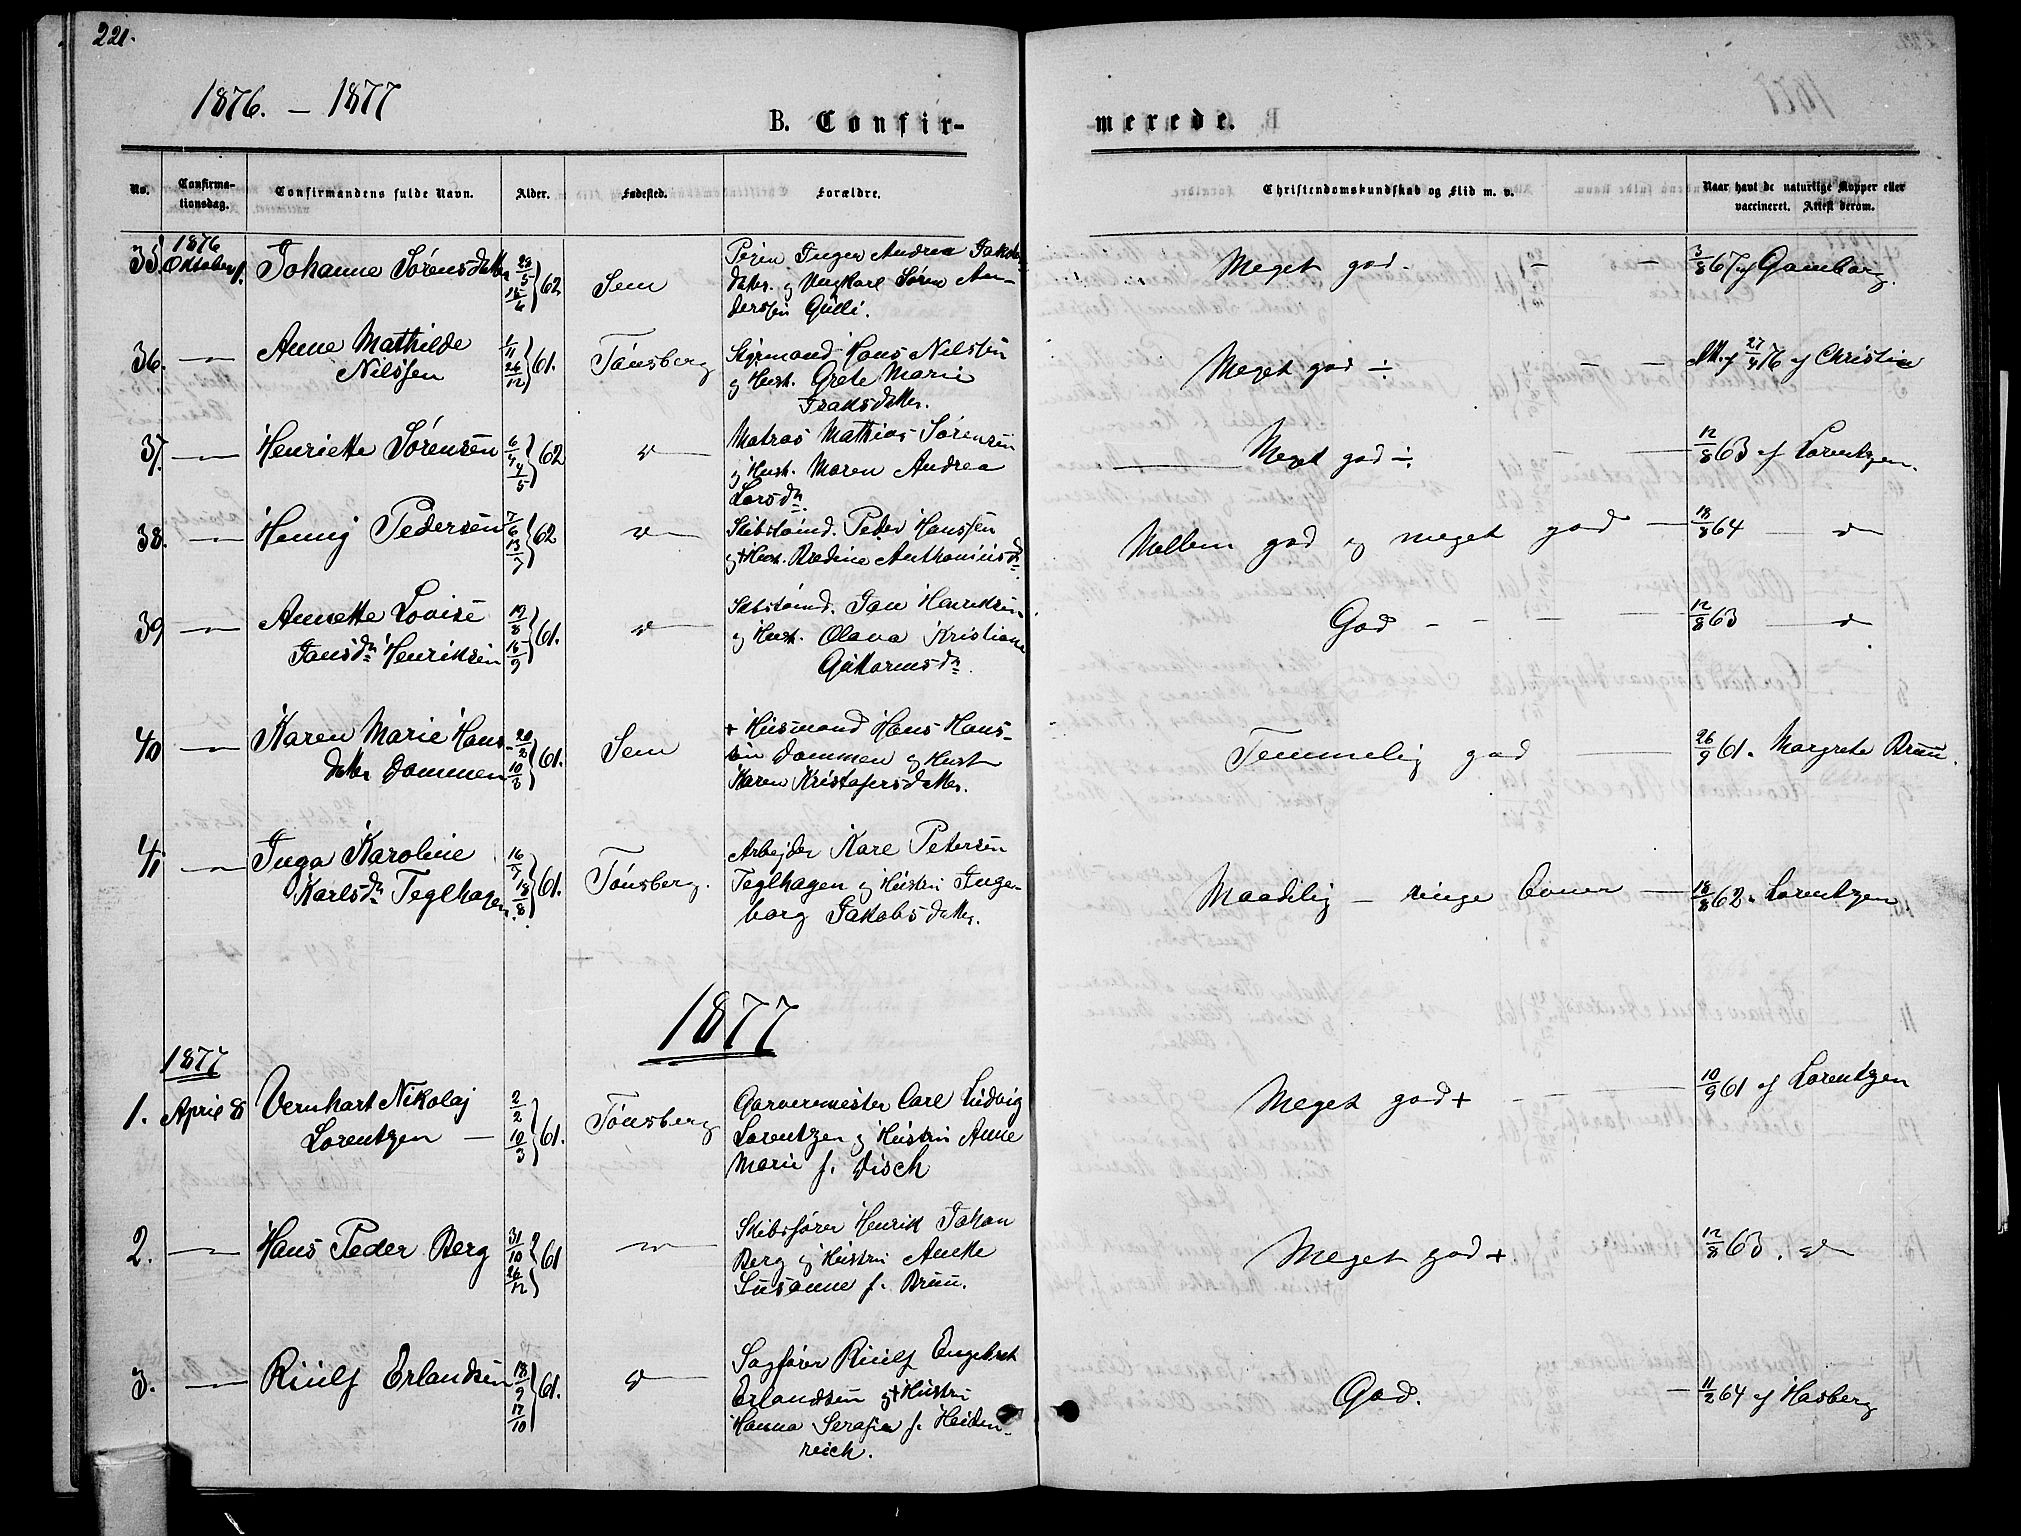 221.
1876. - 1877
B. Confir-
merede.
No.
Confirma-
tionsdag.
Confirmandens fulde Navn.
Alder.
Fødested.
Forældre.
Christendomskundskab og Flid m. v.
Naar havt de naturlige Kopper eller
vaccineret. Attest derom.
35. 1876 Oktober 1. Johanne Sørensdatter 62 Sem
Pigen Inger Andrea Jakobs-
datter og Ungkarl Søren An-
derssen Gulli.
Meget god - - - 3/8 67 af Gamborg.
36. - Anne Mathilde
Nilssen 1/11 26/12 61. Tønsberg
Styrmand Hans Nilssen
og Hust. Grete Marie
Isaksdatter.
Meget god ÷ - - Att. 27/4 76 af Christie
37. - Henriette Sørensen 6/4 4/5 62 "
Matros Mathias Sørensen
og Hust. Maren Andrea
Larsdtr
Meget god ÷ - - 12/8 63 af Lorentzen.
38. - Henny Pedersen 7/6 13/7 62 "
Skibstømd. Peder Hanssen
og + Hust. Bredine Anthonius dtr
Mellem god og meget god - 18/8 64 - "
39 - Annette Lovise
Jansdtr Henriksen 19/8 15/9 61. "
Skibstømd. Jan Henriksen
og Hust. Olava Kristiane
Guttormsdtr.
God - - - - 12/8 63 - "
40 - Karen Marie Hans-
datter Dammen 61. Sem
+ Husmand Hans Hans-
sen Dammen og Hust
Karen Kristofersdatter.
Temmelig god - 26/9 61. Margrete Bruu.
41. - Inga Karoline
Karlsdtr Teglhagen. 61. Tønsberg.
Arbejder Karl Petersen
Teglhagen og Hustru Inge-
borg Jakobsdatter.
Maadelig - ringe Evner - 18/8 62. Lorentzen
1877
1877
1. April 8 Vernhart Nikolaj
Lorentzen - 2/2 10/3 61. Tønsberg
Garvermester Carl Ludvig
Lorentzen og Hustru Anne
Marie f. Disch
Meget god + - - - 10/9 61 af Lorentzen
2. - Hans Peder Berg 31/10 26/12 61 "
Skibsfører Henrik Johan
Berg og Hustru Anette
Susanne f. Bruu.
Meget god + 12/8 63. "
3. - Riulf Erlandsen 18/9 17/10 61. "
Sagfører Riulf Engebret
Erlandsen og + Hustru
Hanna Serafia f. Heiden-
reich.
God. - 11/2 64 af Hasberg